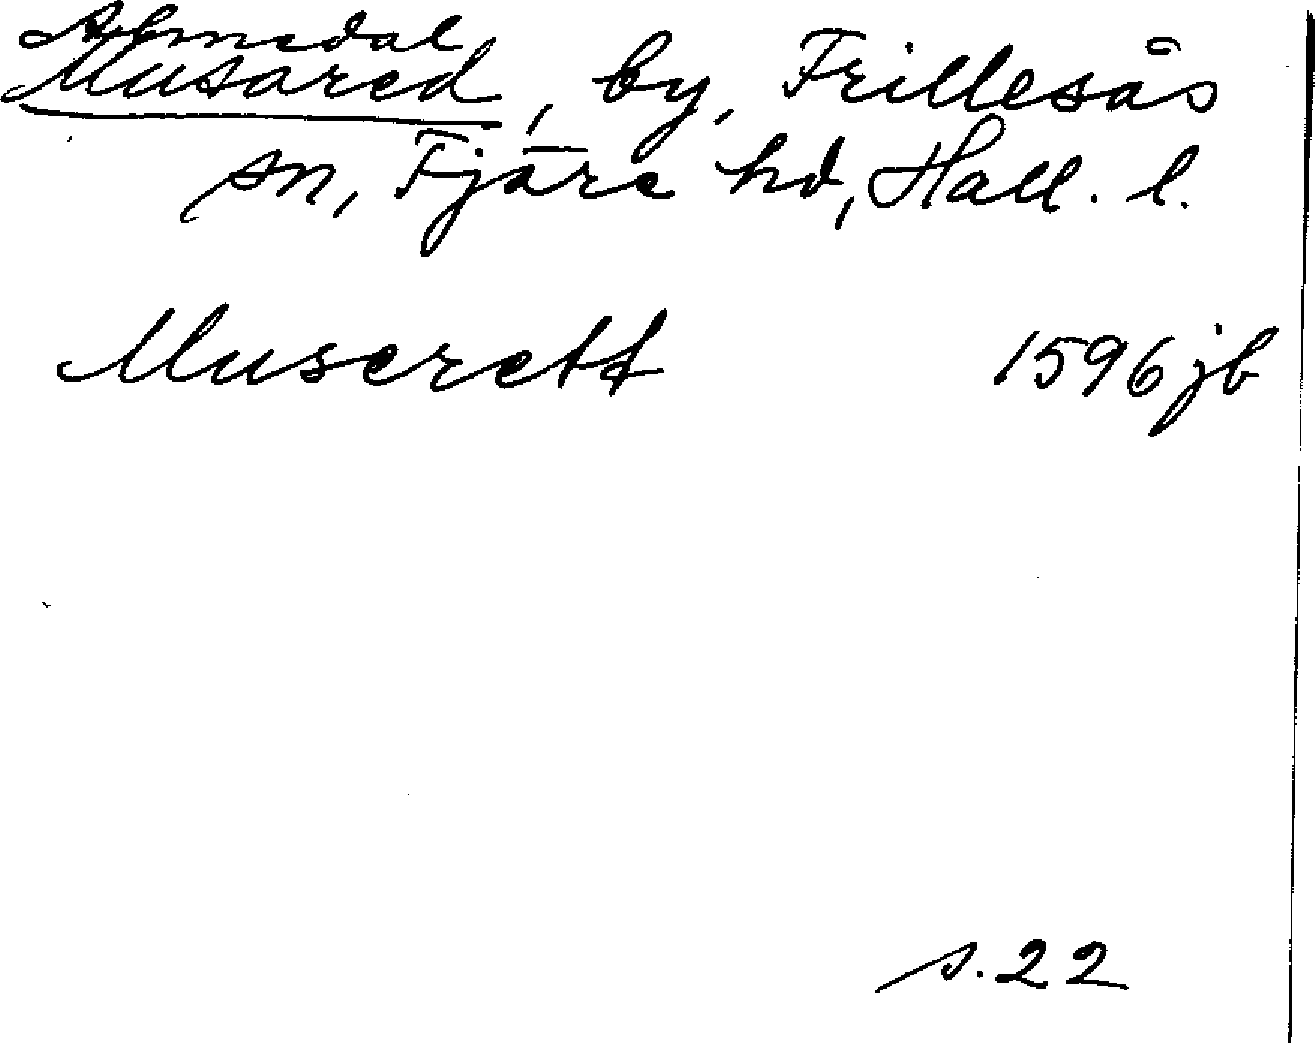 Almedal
Musared, by, Frillesås
sn, Fjäre hd, Hall. l.
Muserett 1596 jb
s. 22